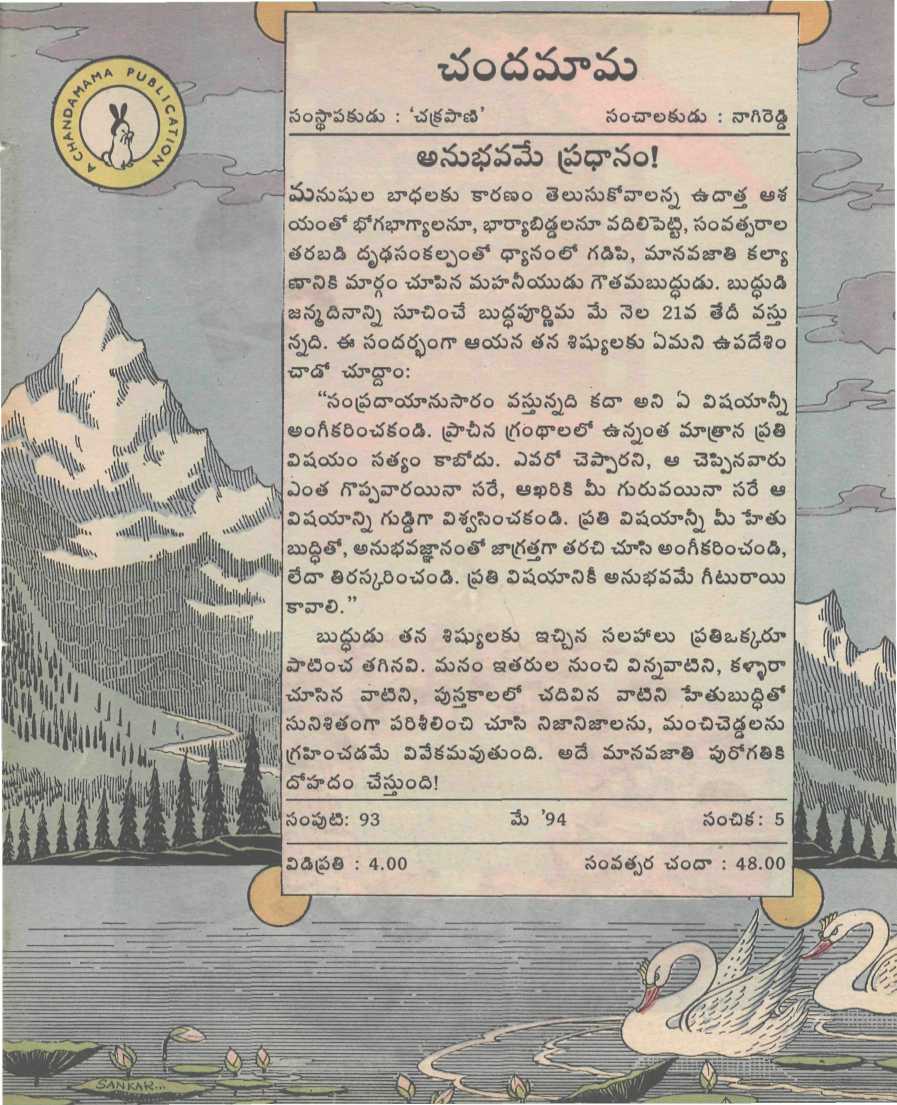 A CHANDAMAMA PUBLICATION
చందమామ
సంస్థాపకుడు : 'చక్రపాణి' సంచాలకుడు : నాగిరెడ్డి
అనుభవమే ప్రధానం!
మనుషుల బాధలకు కారణం తెలుసుకోవాలన్న ఉదాత్త ఆశ
యంతో భోగభాగ్యాలనూ, భార్యాబిడ్డలనూ వదిలిపెట్టి, సంవత్సరాల
తరబడి దృఢసంకల్పంతో ధ్యానంలో గడిపి, మానవజాతి కల్యా
ణానికి మార్గం చూపిన మహనీయుడు గౌతమబుద్ధుడు. బుద్ధుడి
జన్మదినాన్ని సూచించే బుద్ధపూర్ణిమ మే నెల 21వ తేదీ వస్తు
న్నది. ఈ సందర్భంగా ఆయన తన శిష్యులకు ఏమని ఉపదేశిం
చాడో చూద్దాం:
"సంప్రదాయానుసారం వస్తున్నది కదా అని ఏ విషయాన్నీ
అంగీకరించకండి. ప్రాచీన గ్రంథాలలో ఉన్నంత మాత్రాన ప్రతి
విషయం సత్యం కాబోదు. ఎవరో చెప్పారని, ఆ చెప్పినవారు
ఎంత గొప్పవారయినా సరే, ఆఖరికి మీ గురువయినా సరే ఆ
విషయాన్ని గుడ్డిగా విశ్వసించకండి. ప్రతి విషయాన్నీ మీ హేతు
బుద్ధితో, అనుభవజ్ఞానంతో జాగ్రత్తగా తరచి చూసి అంగీకరించండి,
లేదా తిరస్కరించండి. ప్రతి విషయానికీ అనుభవమే గీటురాయి
కావాలి."
బుద్ధుడు తన శిష్యులకు ఇచ్చిన సలహాలు ప్రతిఒక్కరూ
పాటించ తగినవి. మనం ఇతరుల నుంచి విన్నవాటిని, కళ్ళారా
చూసిన వాటిని, పుస్తకాలలో చదివిన వాటిని హేతుబుద్ధితో
సునిశితంగా పరిశీలించి చూసి నిజానిజాలను, మంచిచెడ్డలను
గ్రహించడమే వివేకమవుతుంది. అదే మానవజాతి పురోగతికి
దోహదం చేస్తుంది!
సంపుటి: 93 మే '94 సంచిక: 5
విడిప్రతి : 4.00 సంవత్సర చందా : 48.00
SANKAR...